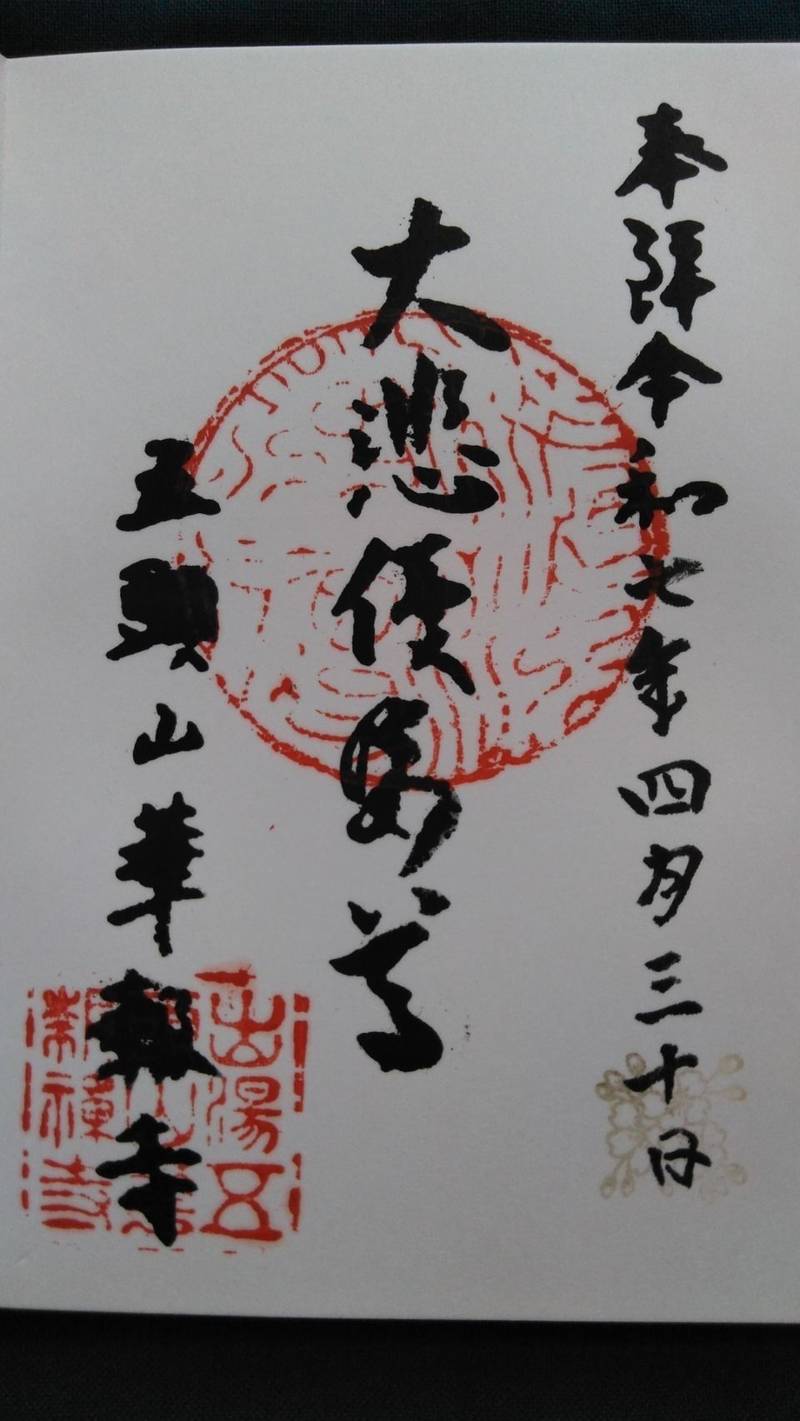 奉拝令和七年四月三十日
大悲優婆尊
五頭山華報寺
出湯五
頭山華
報禪寺